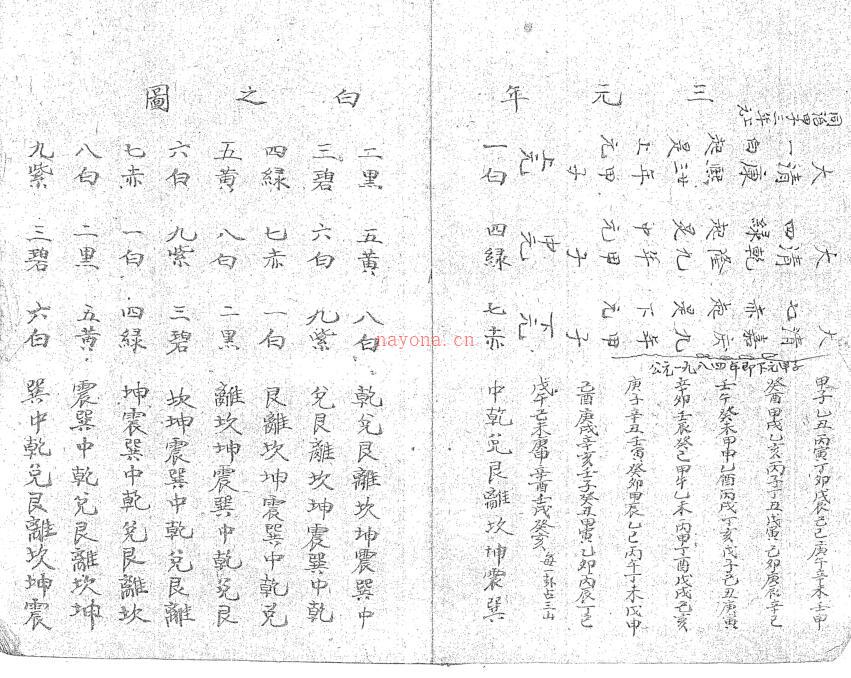 三元年白之圖
同治甲子三年上元
大清康熙廿三年甲子
一白起是上元
上元
大清乾隆九年甲子
四綠起是中元
中元
大清嘉慶九年甲子
七赤起是下元
下元
公元一九八四年即下元甲子
甲子乙丑丙寅丁卯戊辰己巳庚午辛未壬申
癸酉甲戌乙亥丙子丁丑戊寅己卯庚辰辛巳
壬午癸未甲申乙酉丙戌丁亥戊子己丑庚寅
辛卯壬辰癸巳甲午乙未丙申丁酉戊戌己亥
庚子辛丑壬寅癸卯甲辰乙巳丙午丁未戊申
己酉庚戌辛亥壬子癸丑甲寅乙卯丙辰丁巳
戊午己未庚申辛酉壬戌癸亥 每卦占三山
一白 四綠 七赤 中乾兌艮離坎坤震巽
二黑 五黃 八白 乾兌艮離坎坤震巽中
三碧 六白 九紫 兌艮離坎坤震巽中乾
四綠 七赤 一白 艮離坎坤震巽中乾兌
五黃 八白 二黑 離坎坤震巽中乾兌艮
六白 九紫 三碧 坎坤震巽中乾兌艮離
七赤 一白 四綠 坤震巽中乾兌艮離坎
八白 二黑 五黃 震巽中乾兌艮離坎坤
九紫 三碧 六白 巽中乾兌艮離坎坤震
nayona.cn